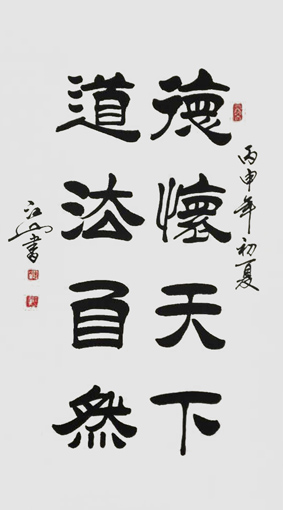 丙申年初夏
德懷天下
道法自然
江山書